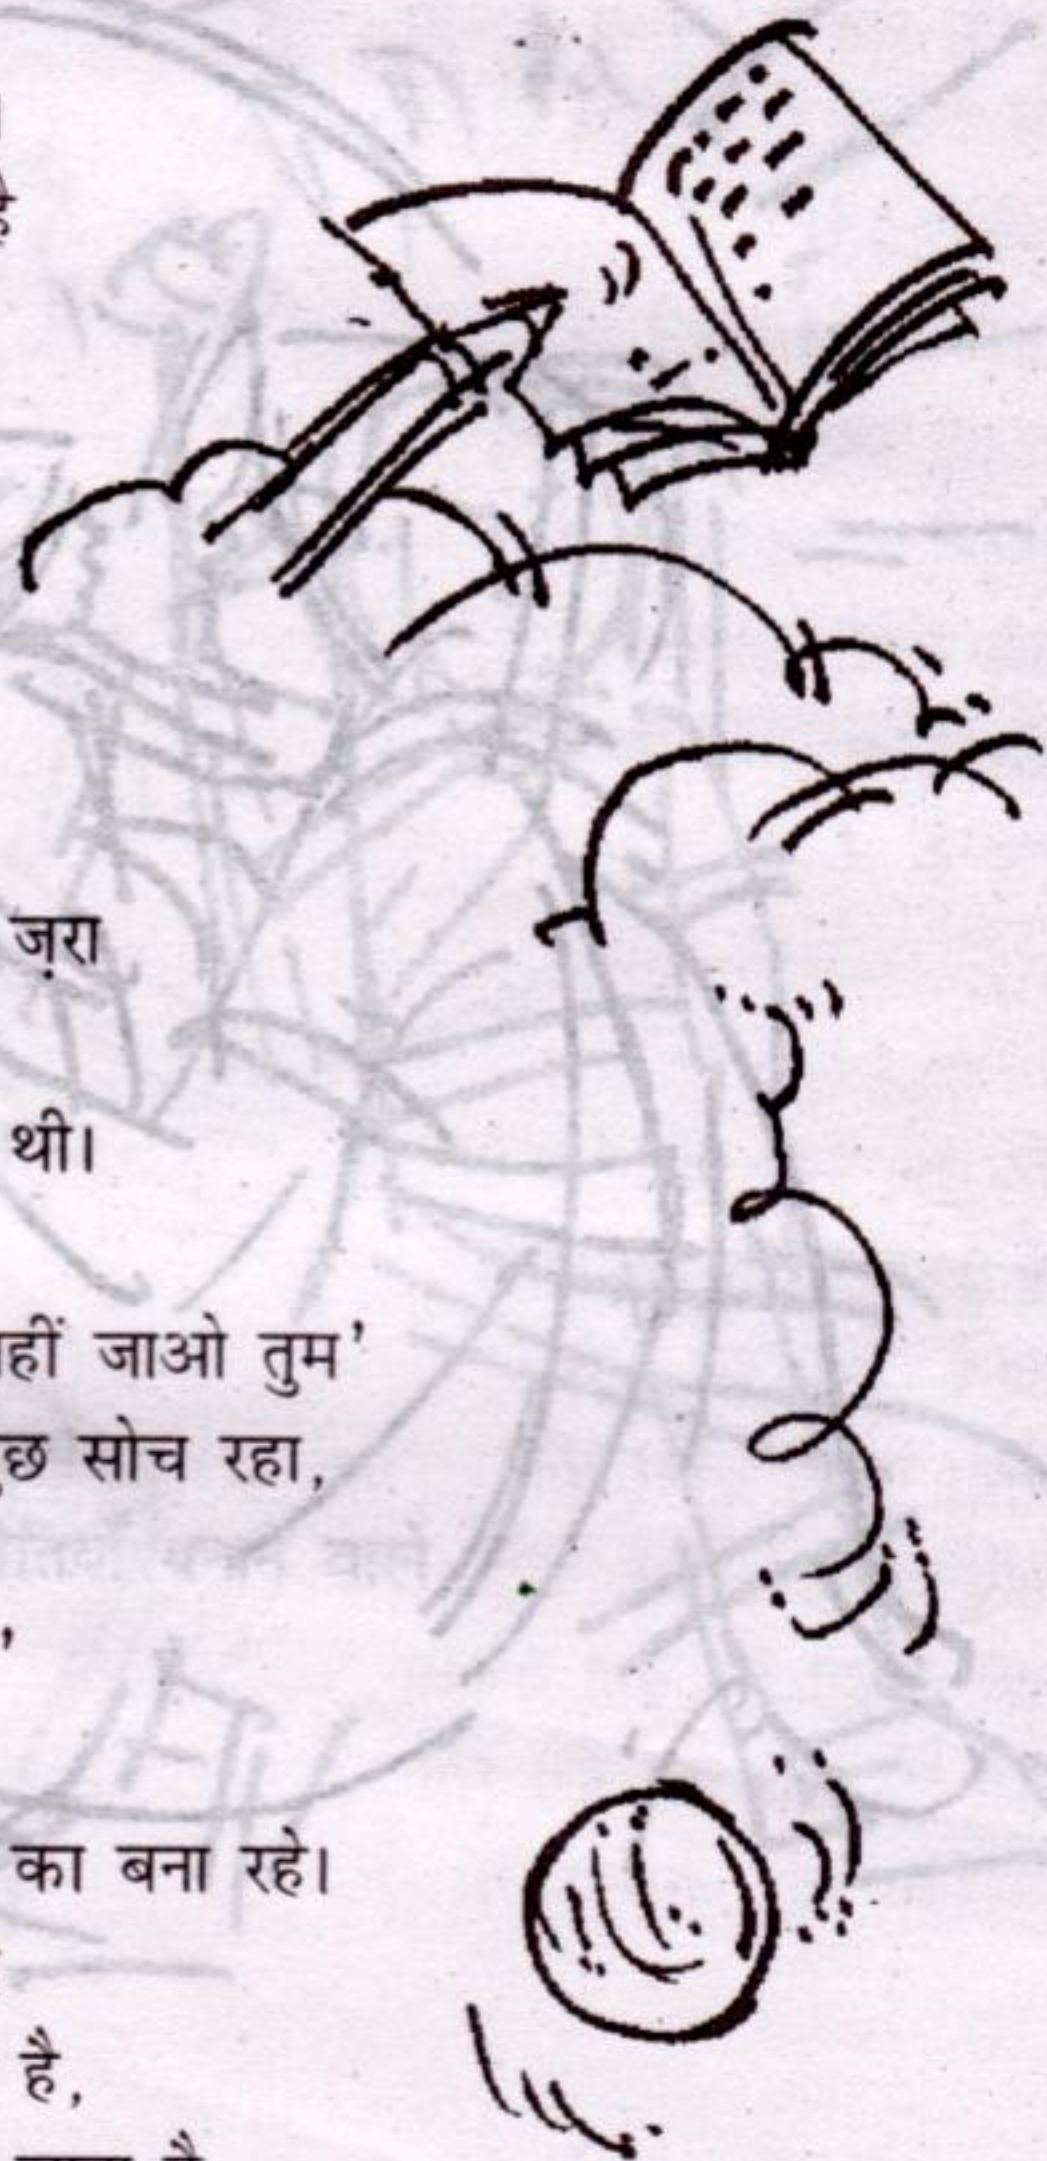 ज़रा
थी।
जाओ तुम'
सोच रहा,
'
का बना रहे।
है,